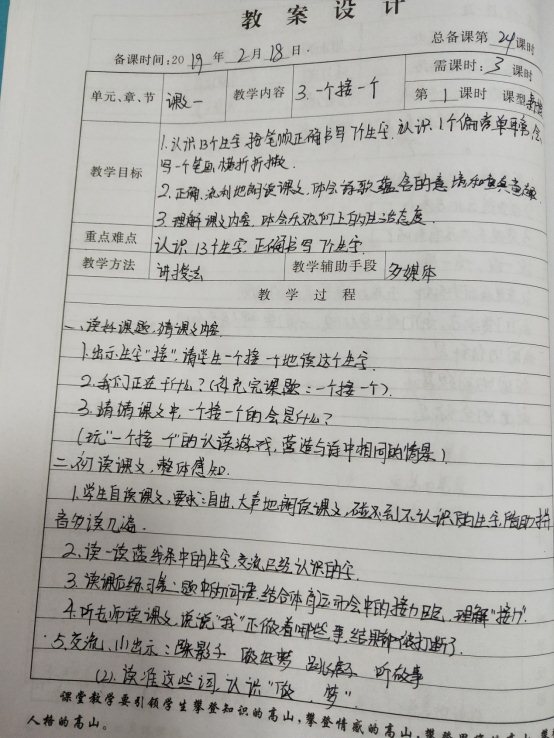 教案设计
总备课第 24 课时
备课时间:2019 年 2 月 18 日.
需课时: 3 课时
单元、章、节 课文一 教学内容 3. 一个接一个 第 1 课时 课型
教学目标
1.认识13个生字 按笔顺正确书写7个生字. 认识1个偏旁单耳
写一个笔画横折折撇.
2.正确、流利地朗读课文,体会诗歌蕴含的
3.理解课文内容,体会乐观向上的生活态度.
重点难点 认识13个生字.正确书写7个生字
教学方法 讲授法 教学辅助手段 多媒体
教学过程
一、读好课题,猜课文内容.
1.出示生字"接",请学生一个接一个地读这个生字.
2.我们正在干什么?(补充完课题:一个接一个).
3.猜猜课文中,一个接一个的会是什么?
(玩"一个接一个"的认读游戏,营造与诗中相同的情景)
二.初读课文,整体感知.
1.学生自读课文,要求:自由、大声地朗读课文,碰到不认识的生字,借助拼
音多读几遍.
2、读一读蓝线条中的生字,交流已经认识的字.
3.读课后练习 题中的词语,结合体育运动会中的接力 理解"接力".
4.听老师读课文,说说"我"正做着哪些事,结果 被打断了.
5.交流. (1)出示:踩影子 做好梦 跳房子 听故事
(2).读准这些词,认识"做、梦".
课堂教学要引领学生攀登知识的高山,攀登情感的高山,攀登
人格的高山。